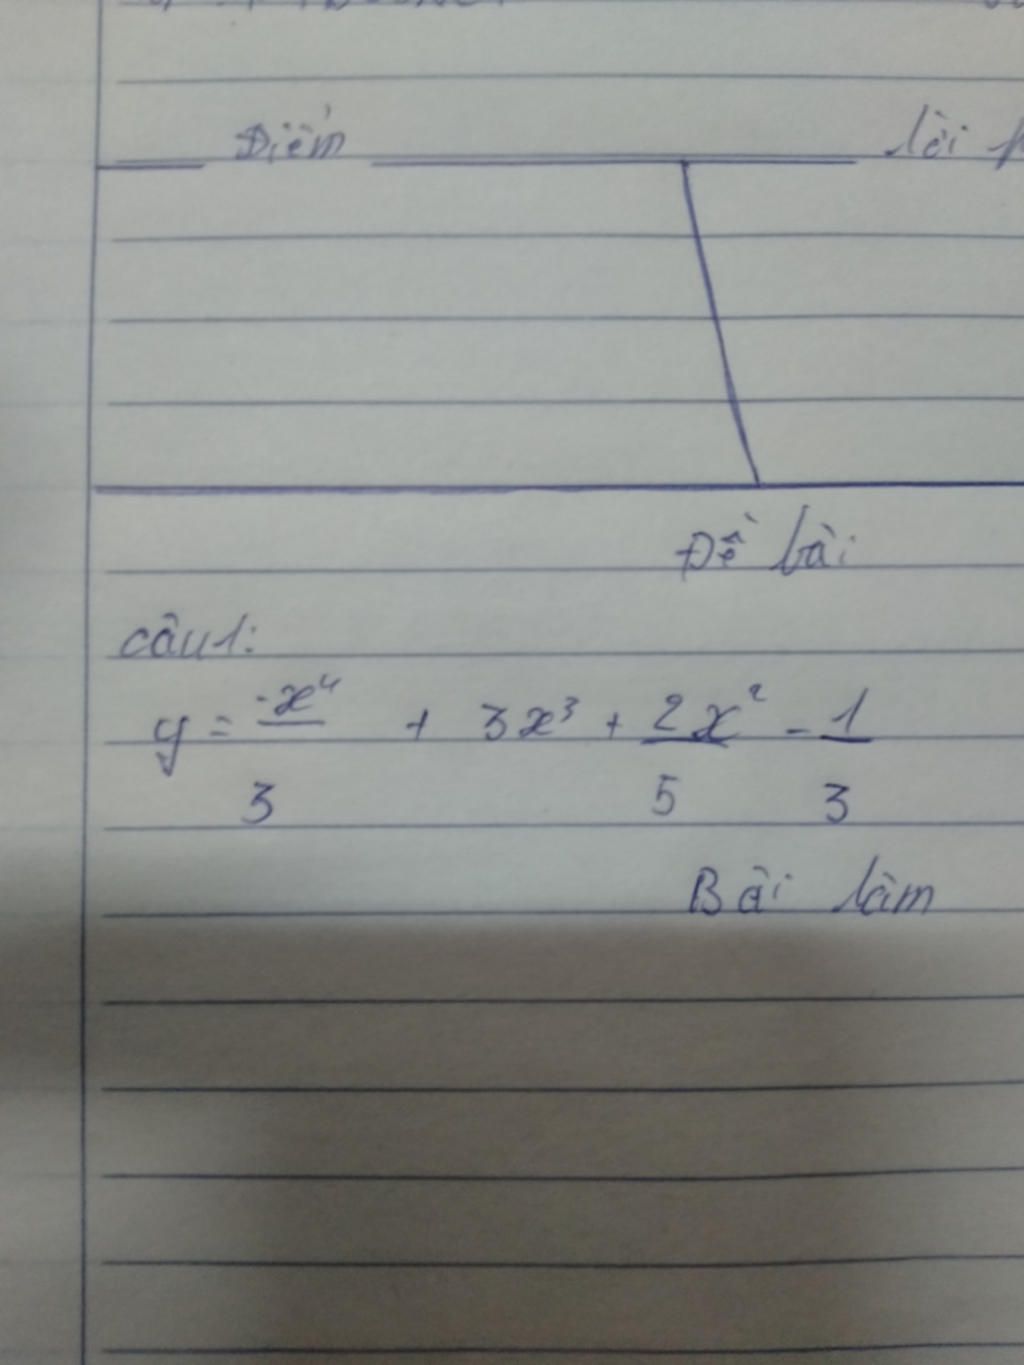 Điểm lời
Đề bài
câu 1:
y = -x⁴/3 + 3x³ + 2x²/5 - 1/3
Bài làm